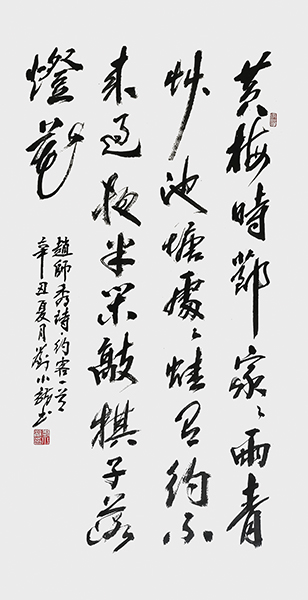 黄梅時節家々雨青
艸池塘處々蛙有約不
来過夜半閑敲棋子落
燈花
趙師秀詩、約客一首
辛丑夏月劉小龍书